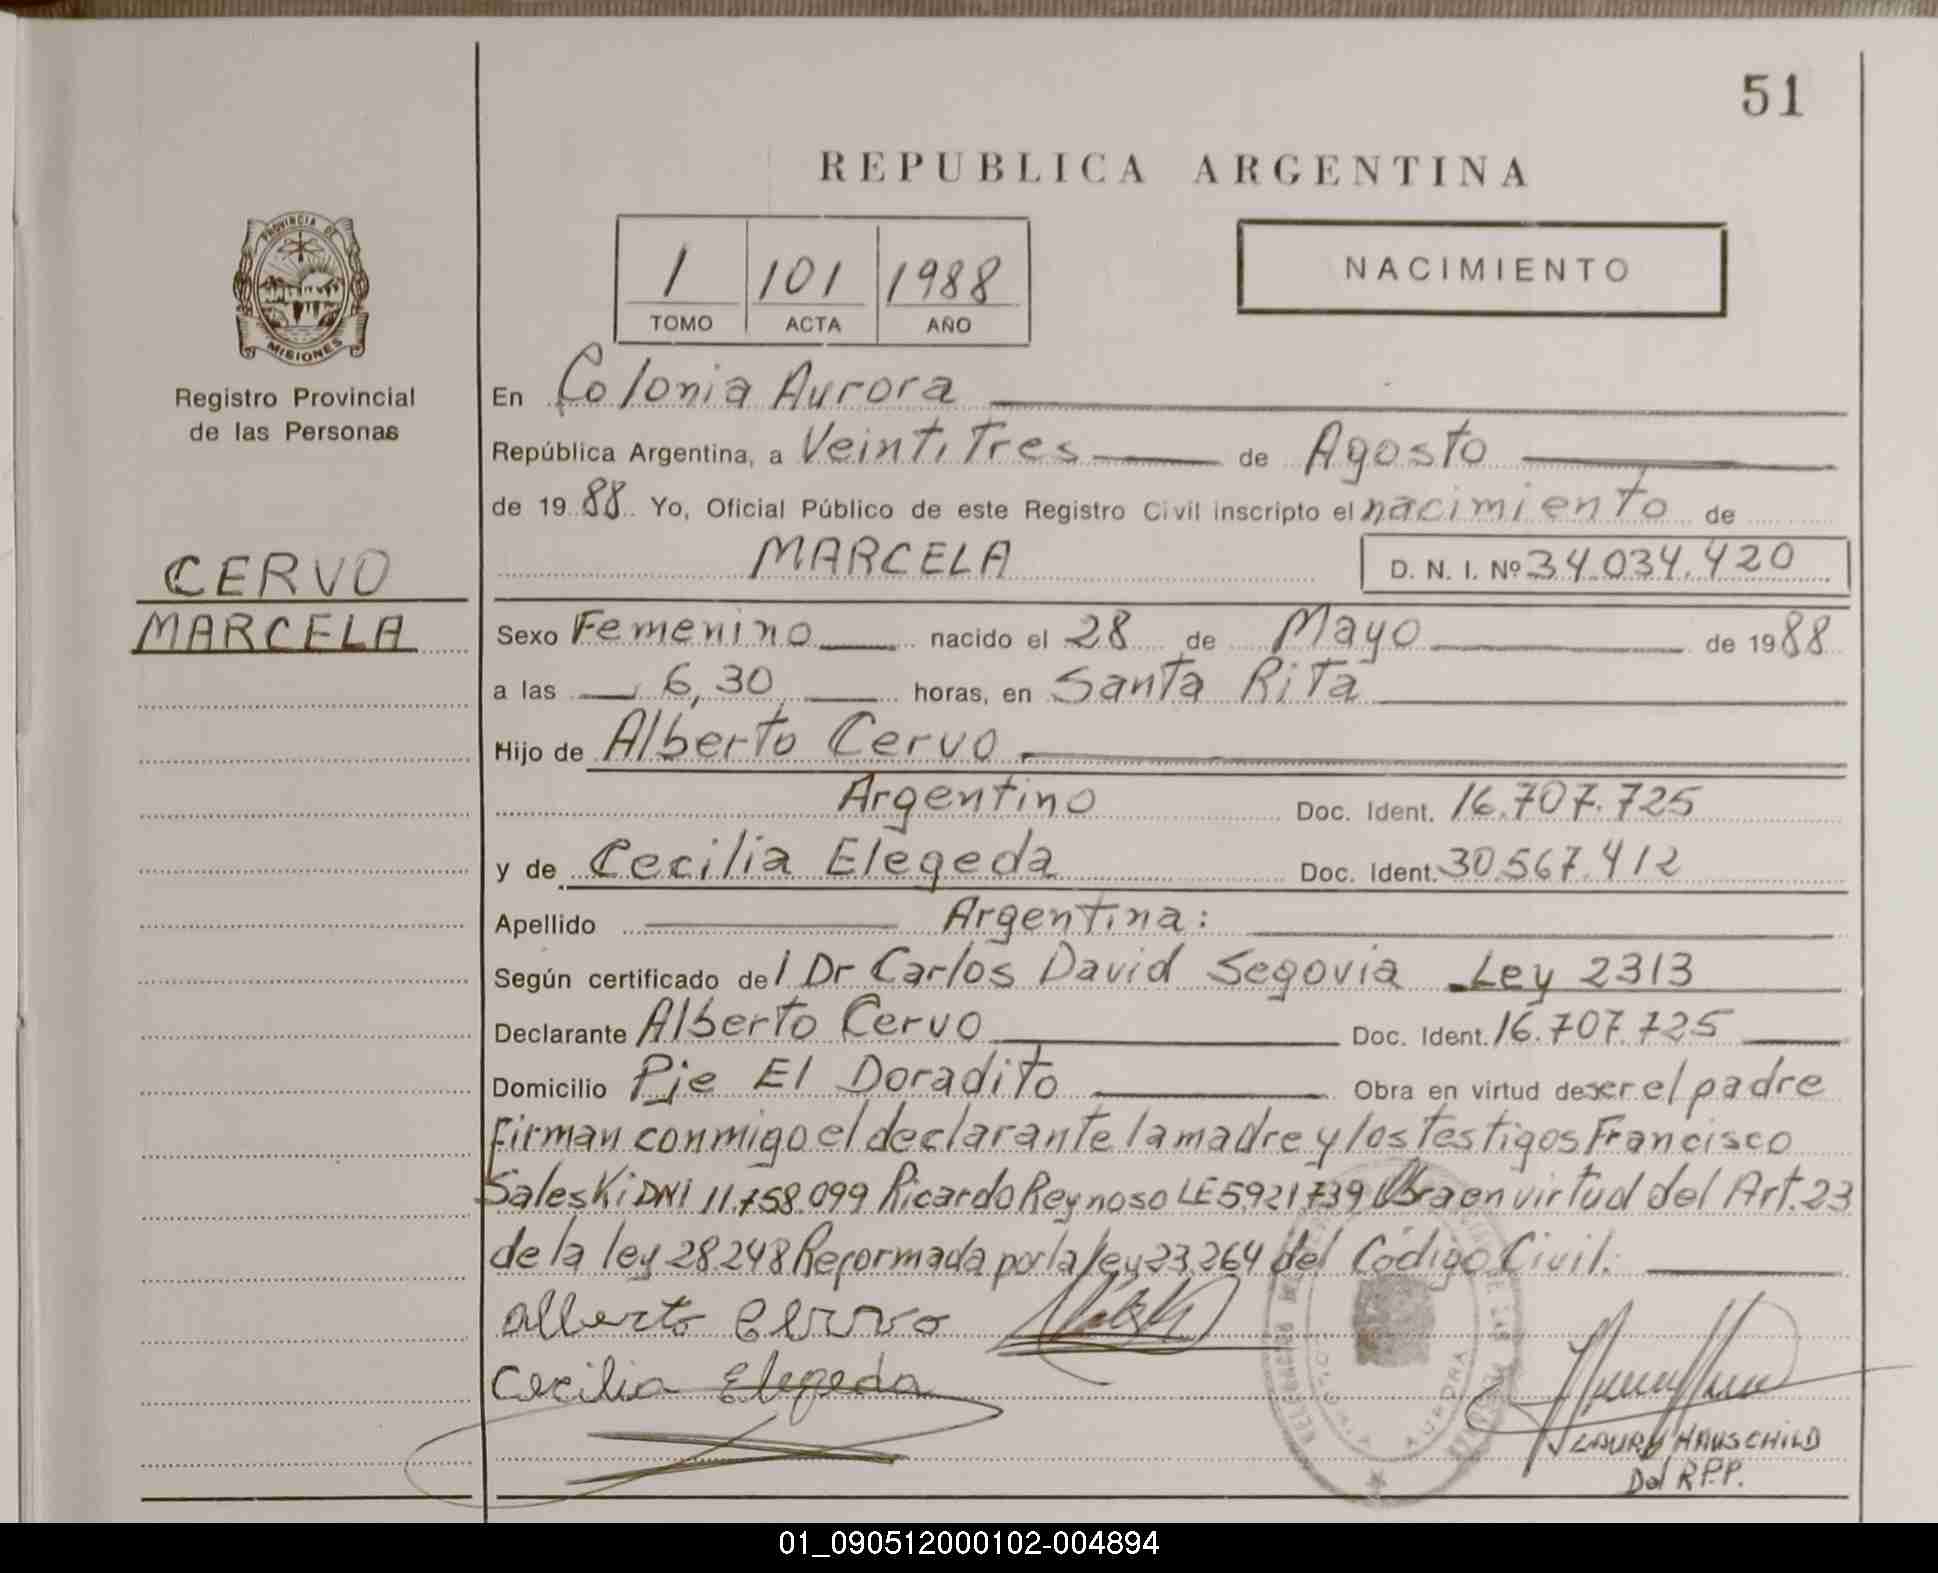 51
REPUBLICA ARGENTINA
PROVINCIA DE
MISIONES
Registro Provincial
de las Personas
1 101 1988
TOMO ACTA AÑO
NACIMIENTO
CERVO
MARCELA
En Colonia Aurora
República Argentina, a Veintitres de Agosto
de 1988 Yo, Oficial Público de este Registro Civil inscripto el nacimiento de
MARCELA D. N. I. Nº 34.034.420
Sexo Femenino nacido el 28 de Mayo de 1988
a las 6,30 horas, en Santa Rita
Hijo de Alberto Cervo
Argentino Doc. Ident. 16.707.725
y de Cecilia Elegeda Doc. Ident. 30.567.412
Apellido Argentina:
Según certificado del Dr Carlos David Segovia Ley 2313
Declarante Alberto Cervo Doc. Ident. 16.707.725
Domicilio Pje El Doradito Obra en virtud de ser el padre
Firman conmigo el declarante la madre y los testigos Francisco
Saleski DNI 11.758.099 Ricardo Reynoso LE 5.921.739 Obra en virtud del Art. 23
de la ley 28.248 Reformada por la ley 23.264 del Código Civil.
Alberto Cervo
Cecilia Elegeda
AURORA
LAURY HAUSCHILD
Del R.P.P.
01_090512000102-004894